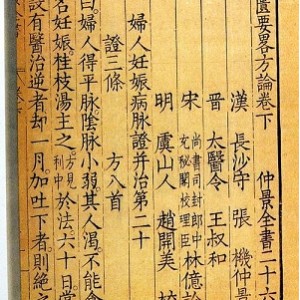 遺要畧方論卷下
仲景全書二十六
漢 長沙守 張 機仲景
晋 太醫令 王叔和
尚書司封郎中
宋 林億
充秘閣校理臣
明 虞山人 趙開美 校
婦人妊娠病脉證并治第二十
證三條 方八首
曰婦人得平脉陰脉小弱其人渴不能食
名妊娠桂枝湯主之方見利中於法六十日當
設有醫治逆者却一月加吐下者則絶之